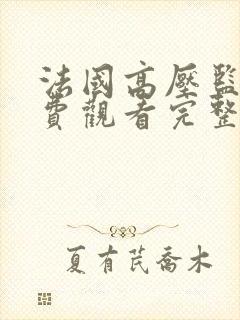 法國高壓監
費觀看完整
夏有芪喬木